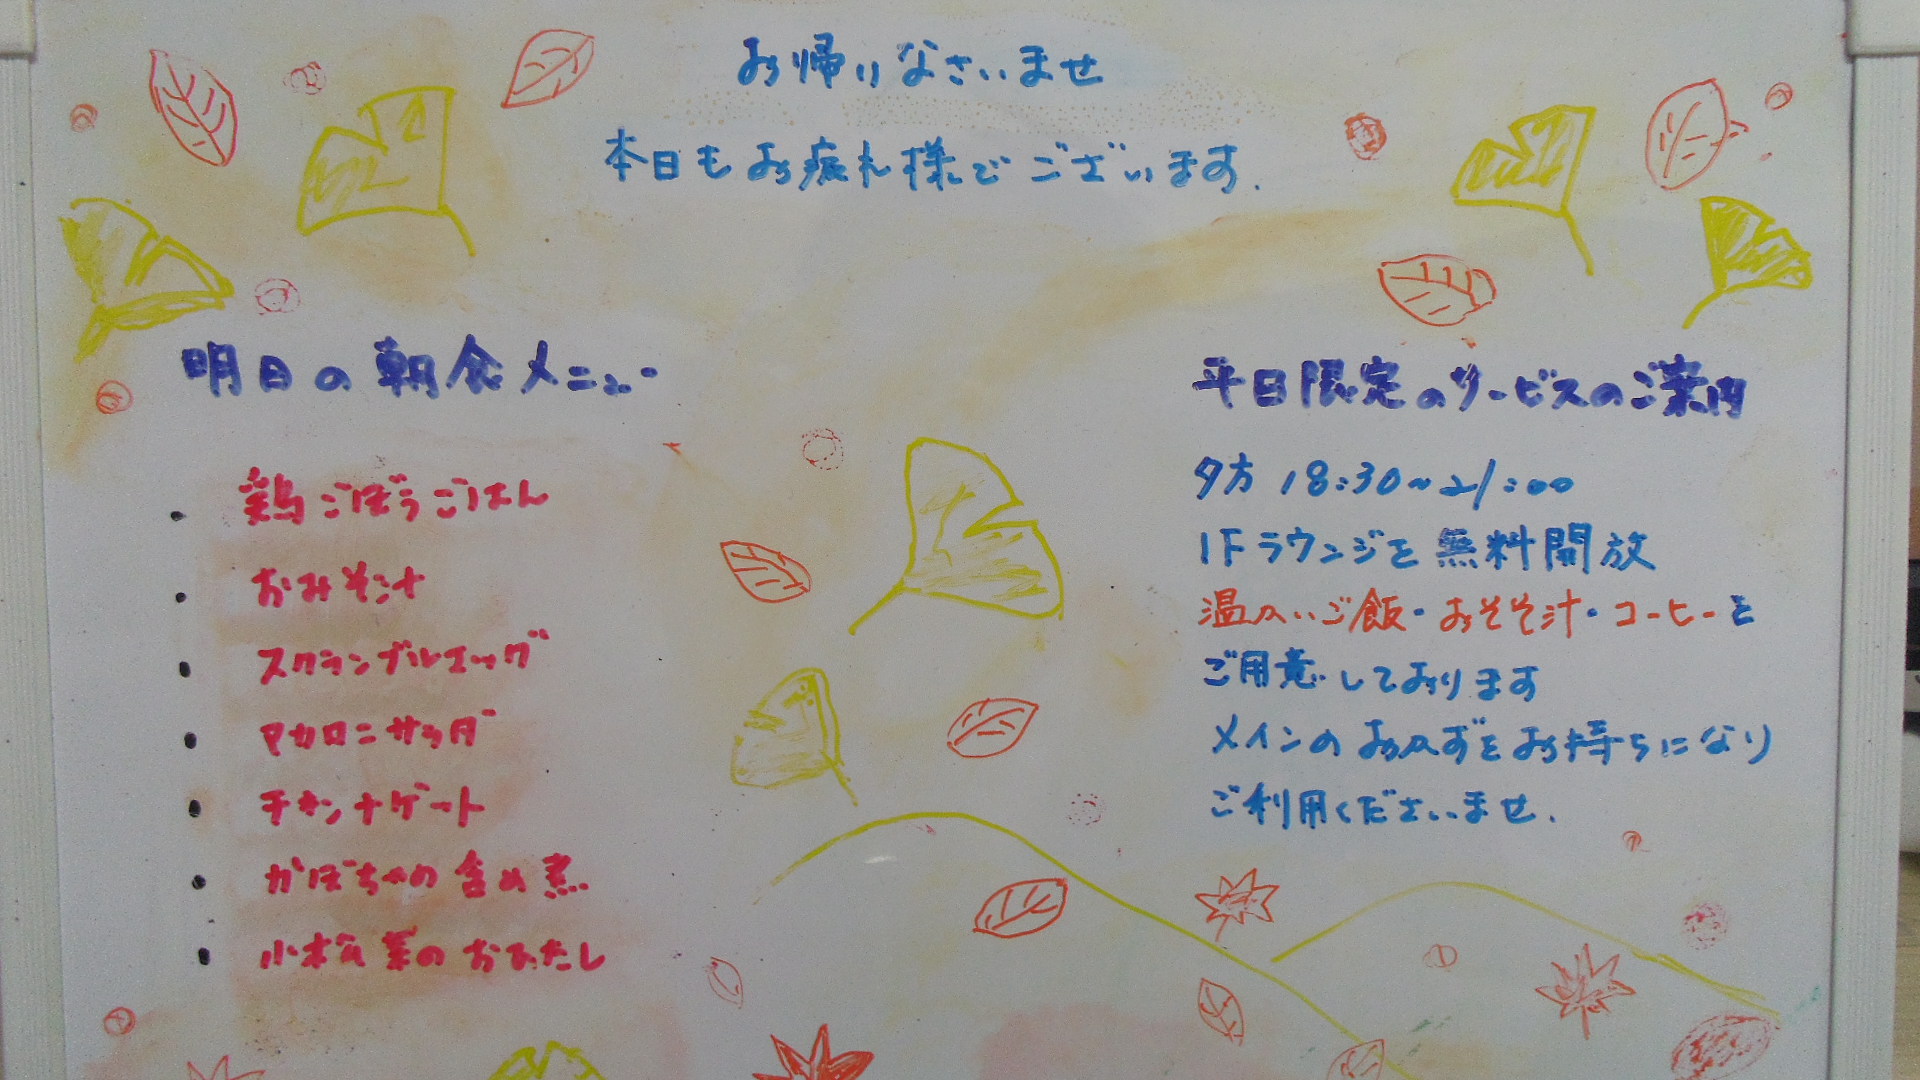 お帰りなさいませ
本日もお疲れ様でございます.
明日の朝食メニュー
・鶏ごぼうごはん
・おみそ汁
・スクランブルエッグ
・マカロニサラダ
・チキンナゲート
・かぼちゃの含め煮
・小松菜のおひたし
平日限定のサービスのご案内
夕方 18:30~21:00
1Fラウンジを無料開放
温かいご飯・おそそ汁・コーヒーを
ご用意しております
メインのおかずをお持ちになり
ご利用くださいませ.